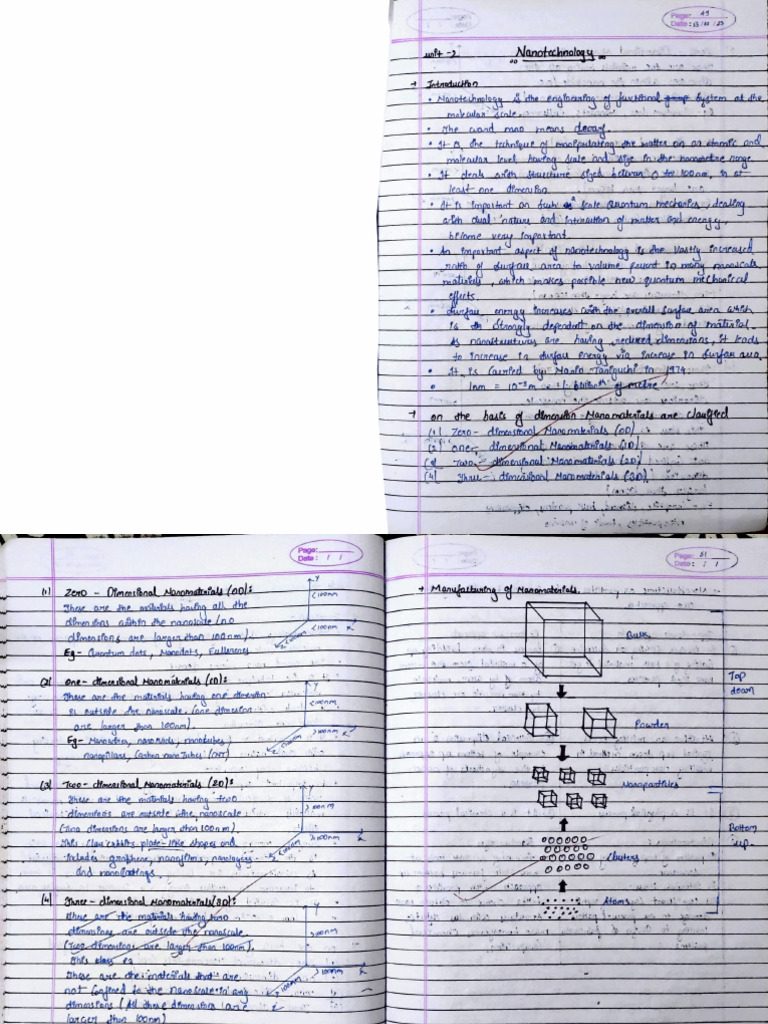 Page: 49
Date: 13/11/23
unit-2
Nanotechnology
Introduction
• Nanotechnology is the engineering of functional system at the
molecular scale.
• The word nano means decay.
• It is the technique of manipulating the matter on an atomic and
molecular level having scale and size in the nanometre range
• It deals with structure sized between 0 to 100nm, in at
least one dimension.
• It is important on such scale quantum mechanics, dealing
with dual nature and interaction of matter and energy,
become very important.
• An important aspect of nanotechnology is the vastly increased
ratio of surface area to volume present in many nanoscale
materials, which makes possible new quantum mechanical
effects.
• Surface energy increases with the overall surface area which
is strongly dependent on the dimension of material.
As nanostructures are having reduced dimensions, it leads
to increase in surface energy via increase in surface area.
• It is carried by Nario Taniguchi in 1974
• 1nm = 10⁻⁹m metre
on the basis of dimension Nanomaterials are classified
(1) Zero - dimensional Nanomaterials (0D)
(2) One - dimensional Nanomaterials (1D)
(3) Two - dimensional Nanomaterials (2D)
(4) Three - dimensional Nanomaterials (3D)
Page:
Date: / /
(1) Zero - Dimensional Nanomaterials (0D):
These are the materials having all the
dimensions within the nanoscale (no
dimensions are larger than 100nm).
Eg - Quantum dots, Nanodots, Fullerenes
Y
<100nm
<100nm
(2) One- dimensional Nanomaterials (1D):
These are the materials having one dimension
is outside the nanoscale. (one dimension
are larger than 100nm).
Eg - Nanowires, nanorods, nanotubes,
nanopillars, Carbon nano Tubes (CNT)
Y
<100nm
(3) Two - dimensional Nanomaterials (2D):
These are the materials having two
dimensions are outside the nanoscale
(Two dimensions are larger than 100nm).
This class exhibits plate-like shapes and
includes graphene, nanofilms, nanolayers
and nanocoatings.
>100nm
>100nm
(4) Three - dimensional Nanomaterials (3D):
These are the materials having two
dimensions are outside the nanoscale
(Two dimensions are larger than 100nm).
This class es
These are the materials that are
not confined to the nanoscale in any
dimensions (All three dimensions are
larger than 100nm)
Y
>100nm
>100nm
Page: 51
Date: / /
Manufacturing of Nanomaterials.
Bulk
Top
down
Powder
Nanoparticles
Bottom
up
Clusters
Atoms